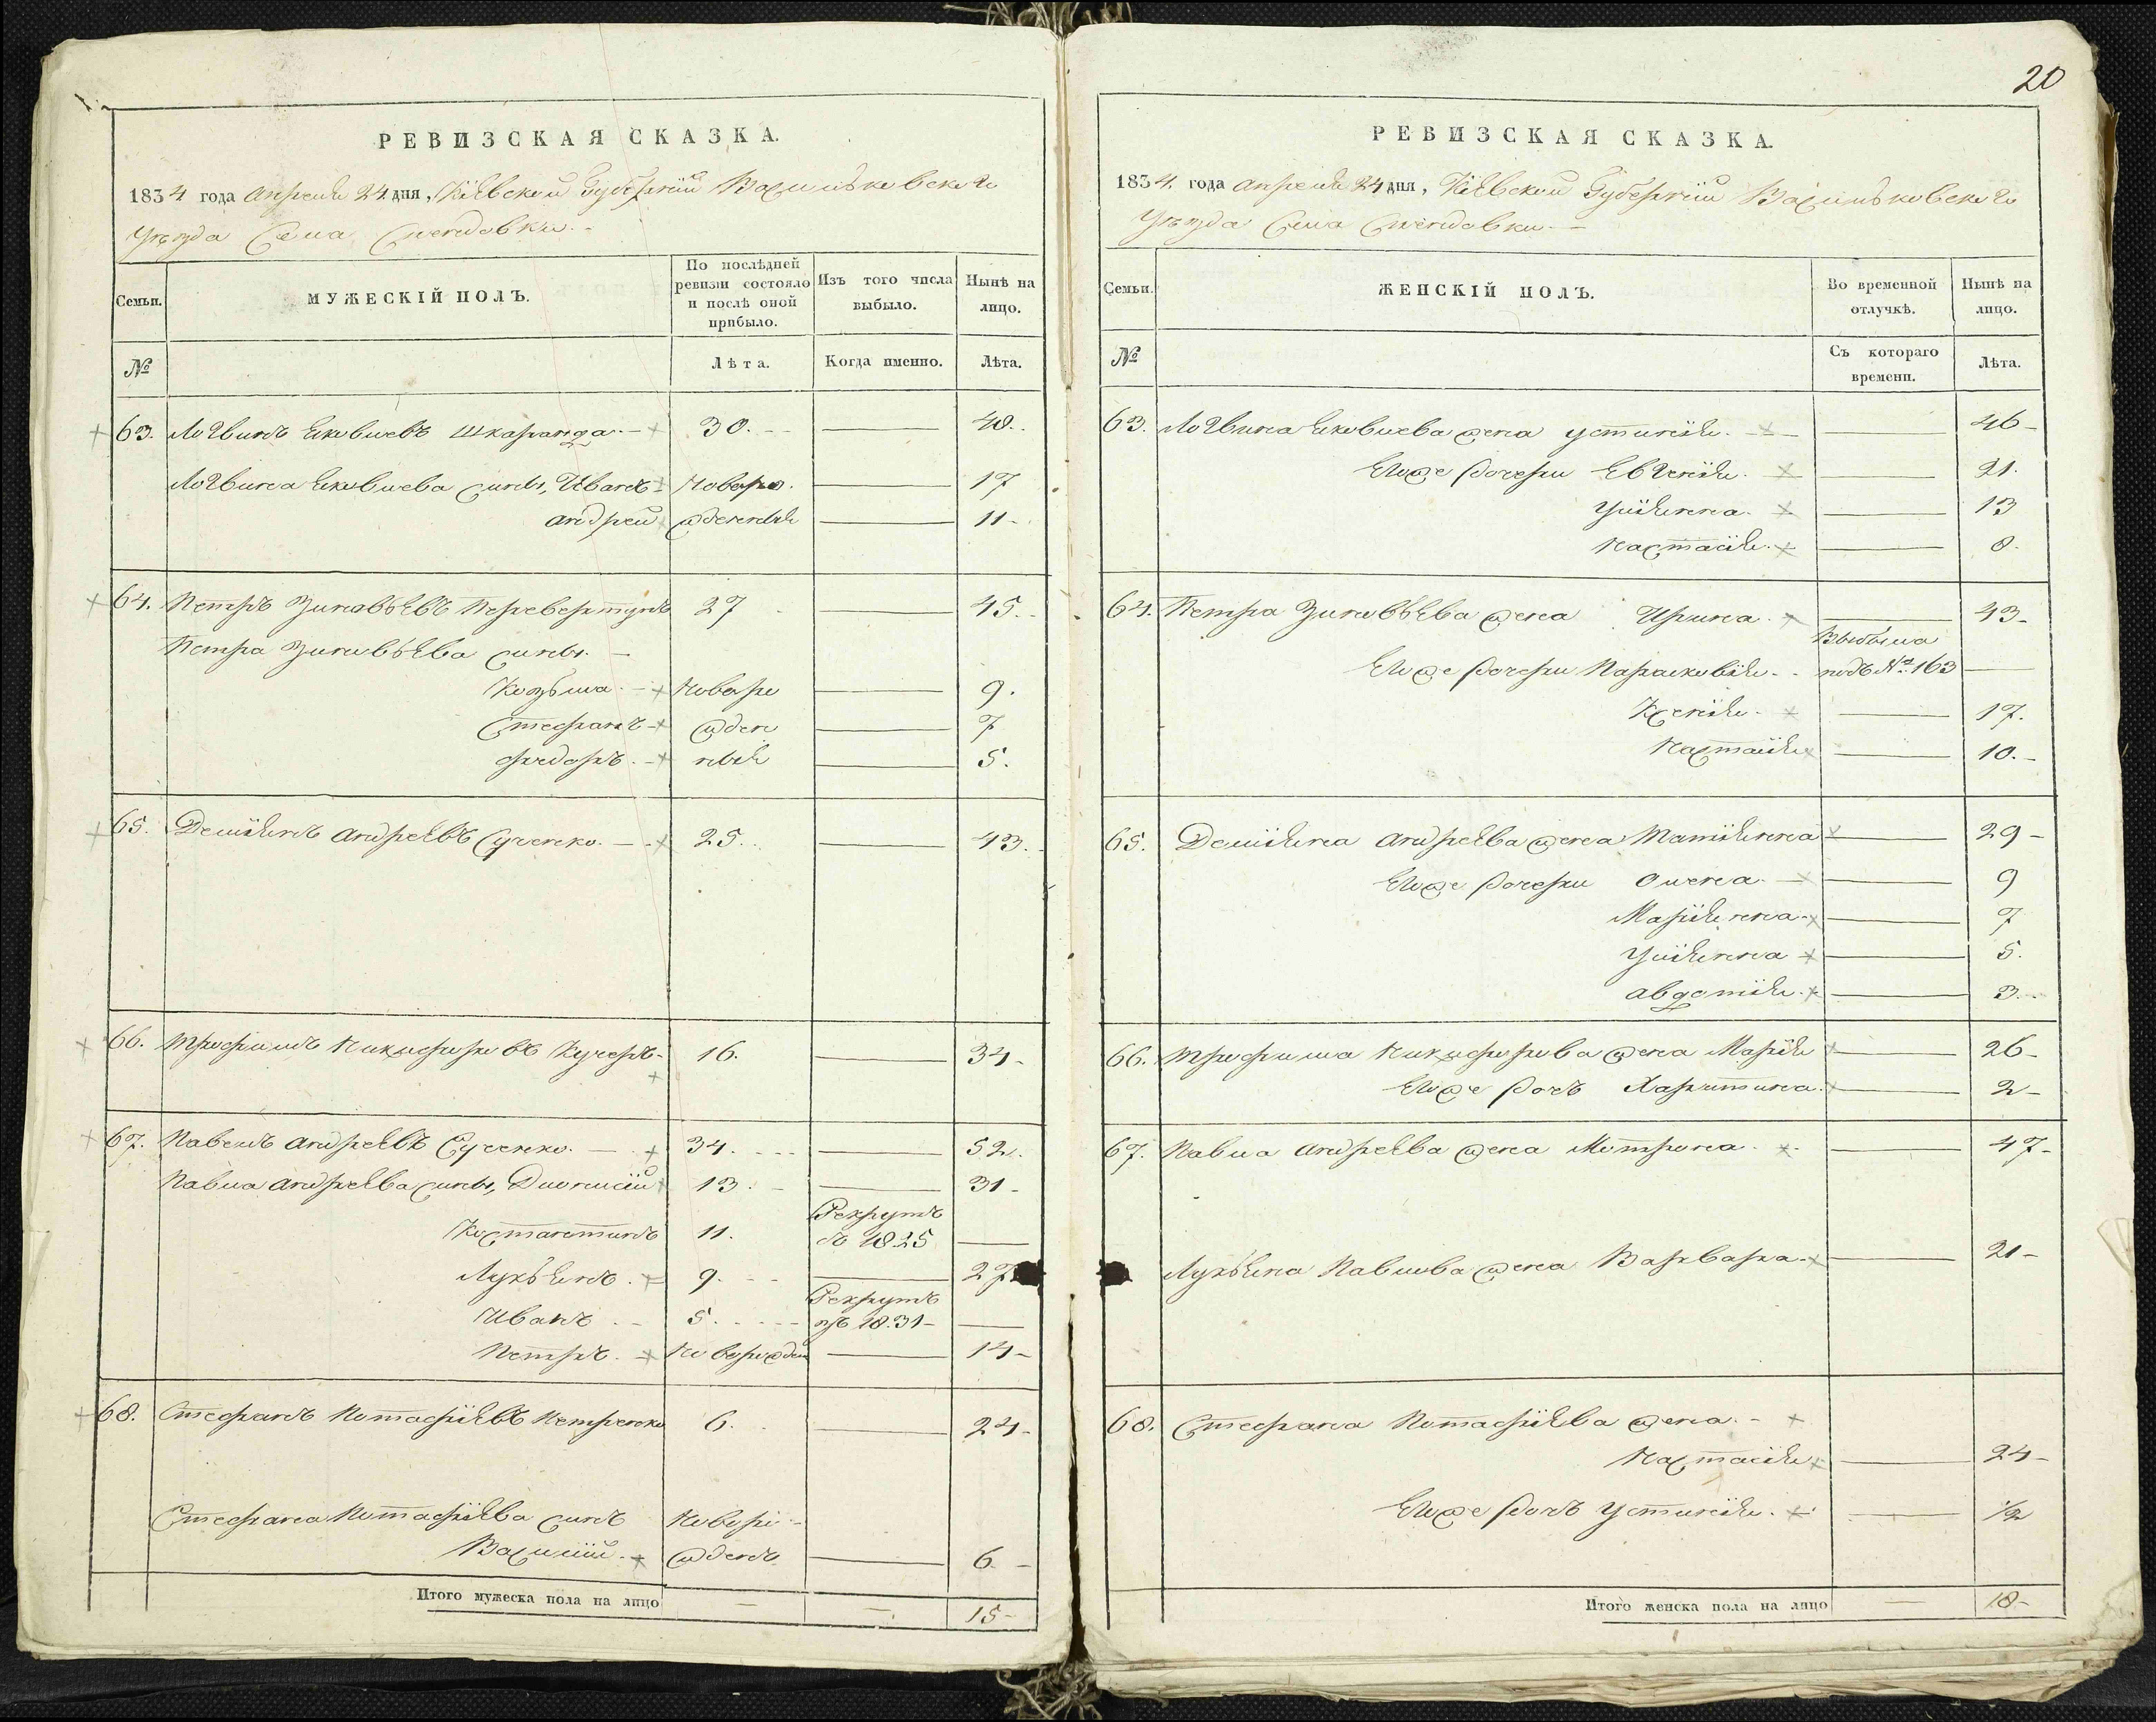 20
РЕВИЗСКАЯ СКАЗКА.
1834 года Апреля 24 дня, Кіевской Губерніи Васильковскаго
Уѣзда Села
Семьи.
МУЖЕСКІЙ ПОЛЪ.
По послѣдней ревизіи состояло и послѣ оной прибыло.
Изъ того числа выбыло.
Нынѣ на лицо.
№
Лѣта.
Когда именно.
Лѣта.
63. Логвинъ Яковлевъ Шкаранда 30. 48.
Логвина Яковлева сыны, Иванъ Новоро 17
Андрей жденныя 11
64. Петръ Зиновьевъ Перевертунъ 27 45.
Петра Зиновьева сыны.
Козьма Новоро 9.
Стефанъ жден 7
Федоръ ныя 5.
65. Деміянъ Андреевъ Сученко 25. 43.
66. Трофимъ Никифоровъ Кучеръ 16. 34
67. Павелъ Андреевъ Сученко 34. 52.
Павла Андреева сыны, Дионисій 13. 31
Костантинъ 11. Рекрутъ въ 1825
Лукьянъ 9. 27
Иванъ 5. Рекрутъ въ 1831
Петръ Новорожден 14
68. Стефанъ Потафіевъ Петренко 6. 24
Стефана Потафіева сынъ Новоро
Василій жденъ 6
Итого мужеска пола на лицо 15
РЕВИЗСКАЯ СКАЗКА.
1834 года Апреля 24 дня, Кіевской Губерніи Васильковскаго
Уѣзда Села
Семьи.
ЖЕНСКІЙ ПОЛЪ.
Во временной отлучкѣ.
Нынѣ на лицо.
№
Съ котораго времени.
Лѣта.
63. Логвина Яковлева жена Устинія 46
Егоже дочери Евгенія 21.
Уліянна 13
Настасія 8.
64. Петра Зиновьева жена Ирина 43
Егоже дочери Парасковія Выбыла подъ № 163
Ксенія 17.
Настасія 10.
65. Деміяна Андреева жена Татіянна 29
Егоже дочери Олена 9
Маріянна 7
Уліянна 5.
Авдотія 3
66. Трофима Никифорова жена Марія 26
Егоже дочь Харитина 2
67. Павла Андреева жена Мотрона 47
Лукьяна Павлова жена Варвара 21
68. Стефана Потафіева жена
Настасія 24
Егоже дочь Устинія 1/2
Итого женска пола на лицо 18